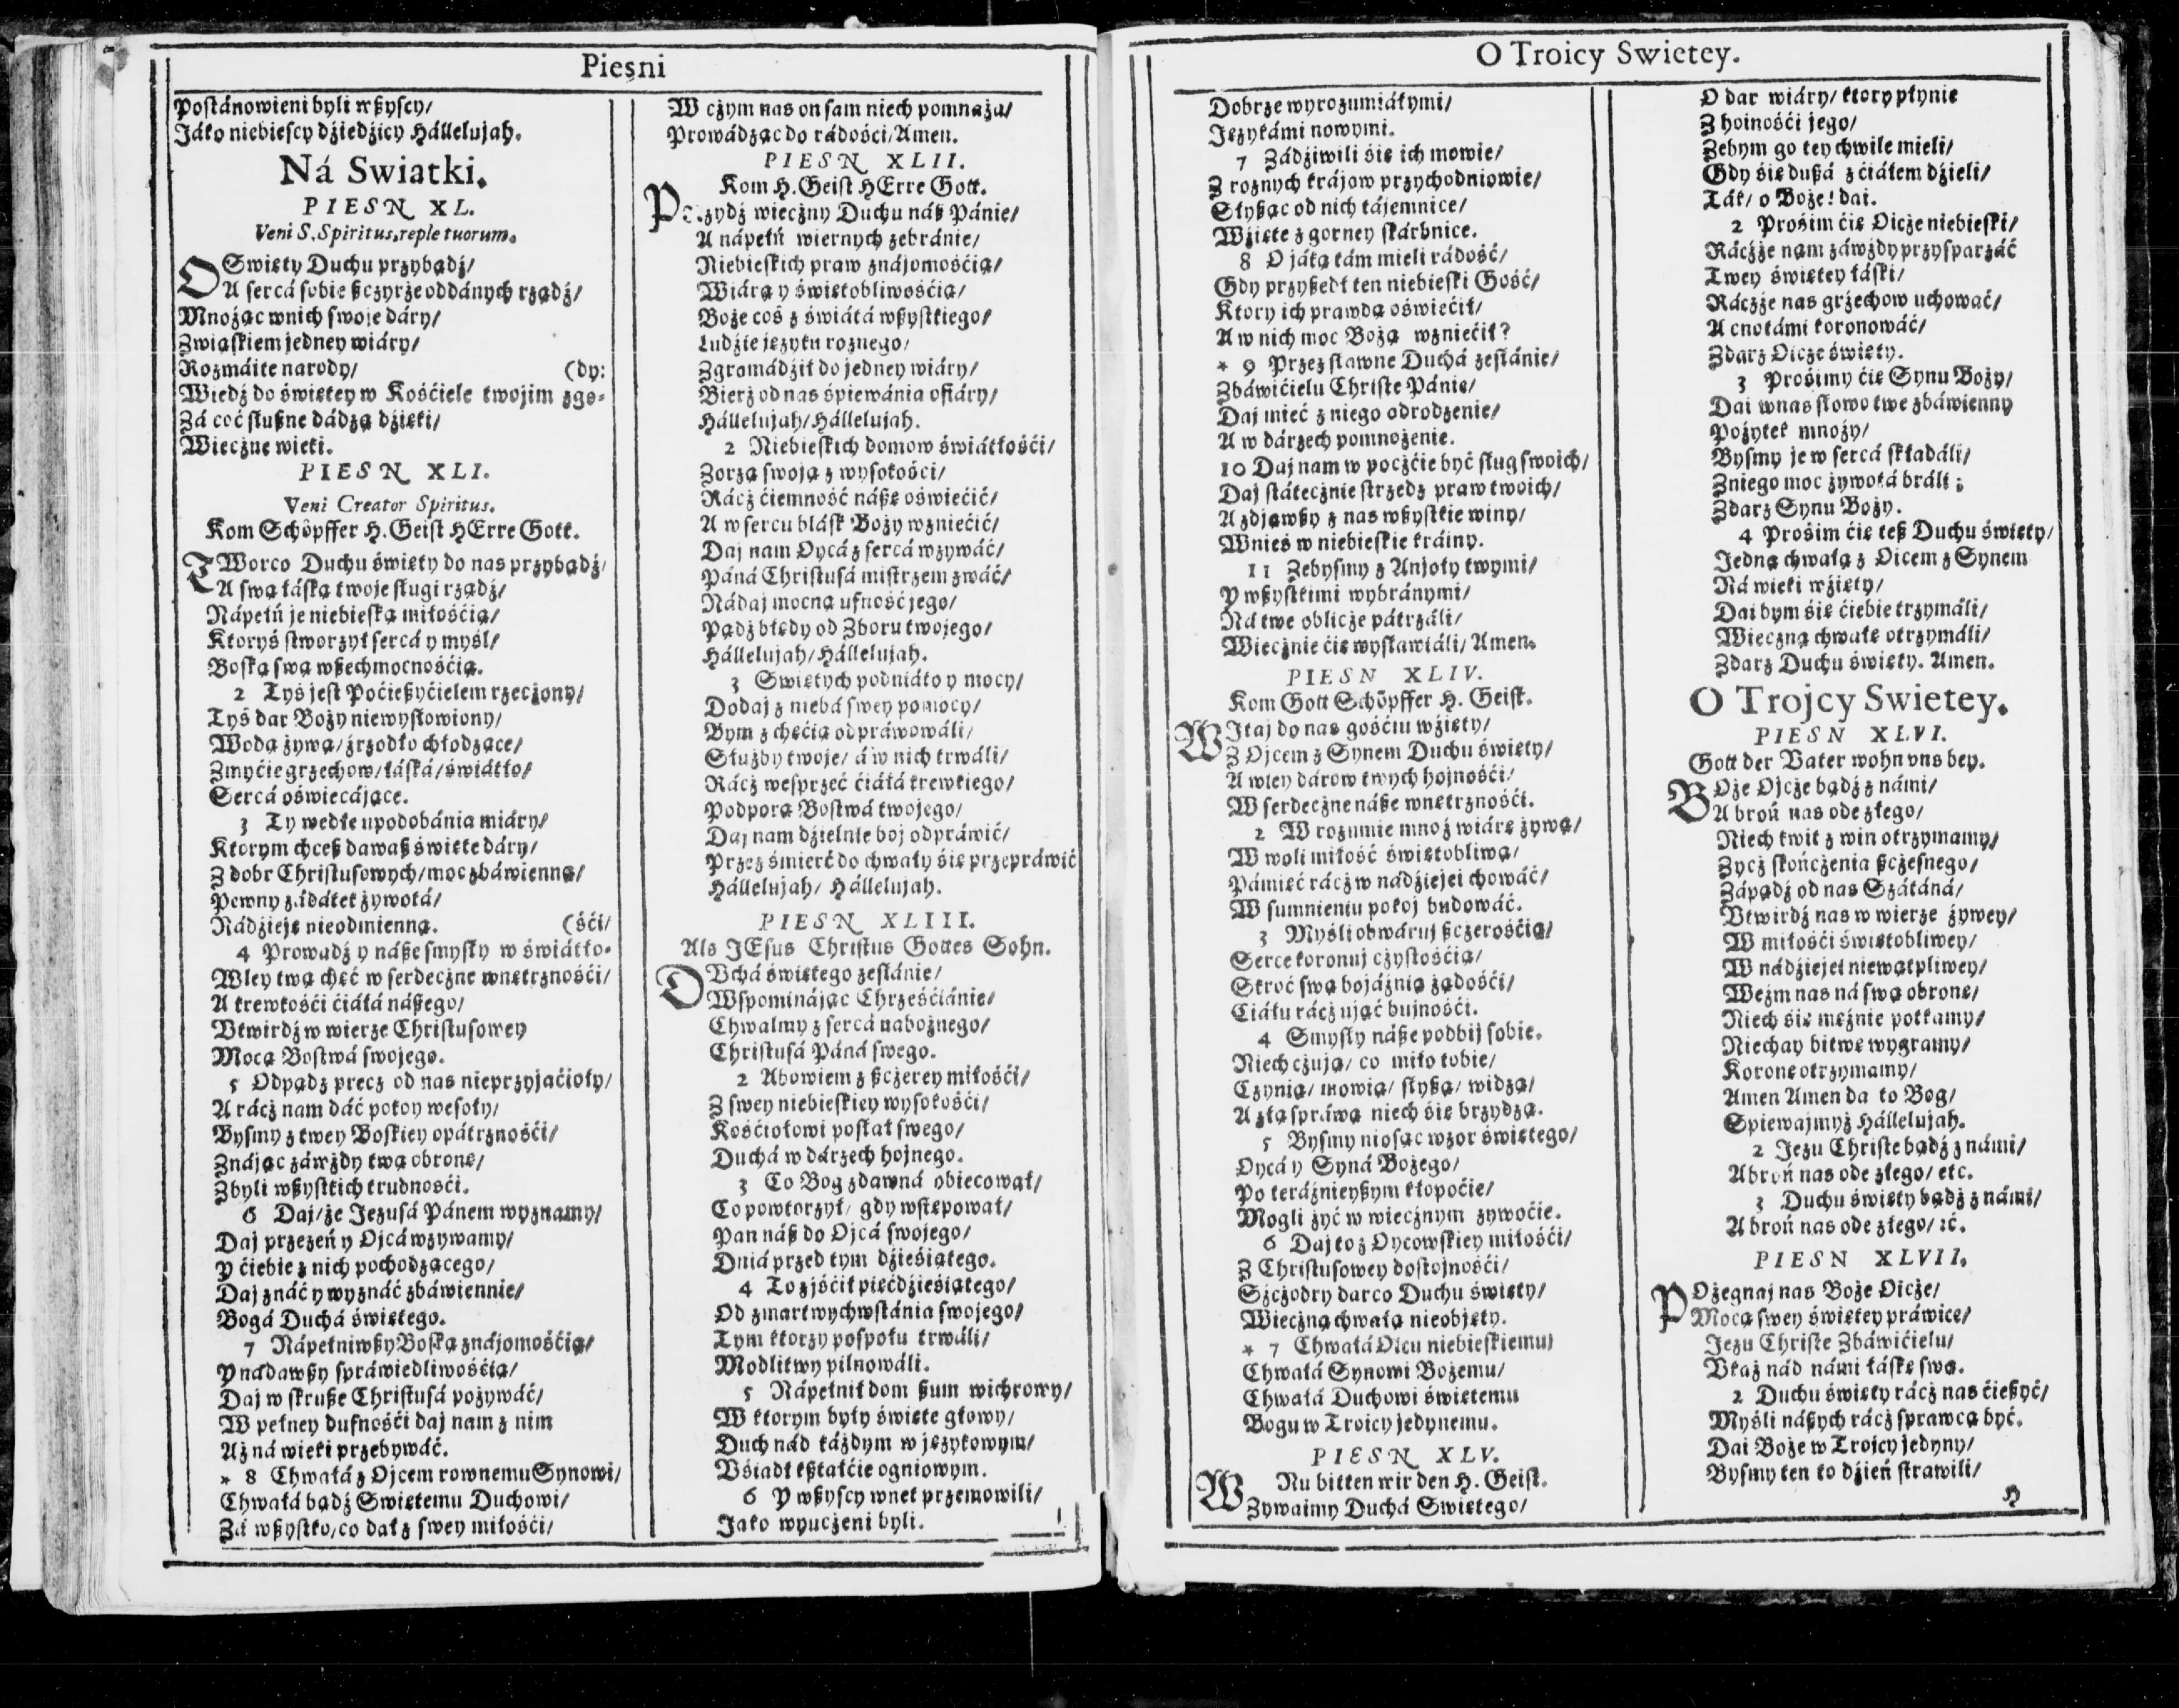 Pieśni
Postánowieni byli wßyscy/
Jáko niebiescy dźiedźicy Hállelujah.
Ná Swiatki.
PIESN XL.
Veni S. Spiritus, reple tuorum.
O Swięty Duchu przybądź/
A sercá sobie ßczyrze oddánych rządź/
Mnożąc w nich swoje dáry/
Związkiem jedney wiáry/
Rozmáite narody/ (dy:
Wiedź do świętey w Kośćiele twojim zgo-
Zá coć słußne dádzą dźięki/
Wieczne wieki.
PIESN XLI.
Veni Creator Spiritus.
Kom Schöpffer H. Geist HErre Gott.
TWorco Duchu święty do nas przybądź/
A swą łáską twoje sługi rządź/
Nápełń je niebieską miłośćią/
Ktoryś stworzył sercá y myśl/
Boską swą wßechmocnośćią.
2 Tyś jest Poćießyćielem rzeczony/
Tyś dar Boży niewysłowiony/
Wodą żywą/ źrzodło chłodzące/
Zmyćie grzechow/ łáská/ świátło/
Sercá oświecájące.
3 Ty wedle upodobánia miáry/
Ktorym chceß dawaß święte dáry/
Z dobr Christusowych/ moc zbáwienną/
Pewny zádátek żywotá/
Nádźieję nieodmienną. (śći/
4 Prowadź y náße smysły w świátło-
Wley twą chęć w serdeczne wnętrznośći/
A krewkośći ćiáłá náßego/
Vtwirdź w wierze Christusowey
Mocą Bostwá swojego.
5 Odpądź precz od nas nieprzyjaćioły/
A rácz nam dáć pokoy wesoły/
Bysmy z twey Boskiey opátrznośći/
Znájąc záwżdy twą obronę/
Zbyli wßystkich trudnośći.
6 Daj/ że Jezusá Pánem wyznamy/
Daj przezeń y Ojcá wzywamy/
Y ćiebie z nich pochodzącego/
Daj znáć y wyznáć zbáwiennie/
Bogá Duchá świętego.
7 Nápełniwßy Boską znájomośćią/
Y nádawßy spráwiedliwośćią/
Daj w skruße Christusá pożywáć/
W pełney dufnośći daj nam z nim
Aż ná wieki przebywáć.
* 8 Chwałá z Ojcem rownemu Synowi/
Chwałá bądź Swiętemu Duchowi/
Zá wßystko/ co dał z swey miłośći/
W czym nas on sam niech pomnaża/
Prowádząc do rádośći/ Amen.
PIESN XLII.
Kom H. Geist HErre Gott.
Przydź wieczny Duchu náß Pánie/
A nápełń wiernych zebránie/
Niebieskich praw znájomośćią/
Wiárą y świętobliwośćią/
Boże coś z świátá wßystkiego/
Ludźie języku roznego/
Zgromádźił do jedney wiáry/
Bierz od nas śpiewánia ofiáry/
Hállelujah/ Hállelujah.
2 Niebieskich domow świátłośći/
Zorzą swoją z wysokośći/
Rácz ćiemność náßę oświećić/
A w sercu blásk Boży wzniećić/
Daj nam Oycá z sercá wzywáć/
Páná Christusá mistrzem zwáć/
Nádaj mocną ufność jego/
Pądź błędy od Zboru twojego/
Hállelujah/ Hállelujah.
3 Swiętych podniáto y mocy/
Dodaj z niebá swey pomocy/
Bym z chęćią odpráwowáli/
Służby twoje/ á w nich trwáli/
Rácz wesprzeć ćiáłá krewkiego/
Podporą Bostwá twojego/
Daj nam dźielnie boj odpráwić/
Przez śmierć do chwały się przepráwić
Hállelujah/ Hállelujah.
PIESN XLIII.
Als JEsus Christus Gottes Sohn.
DVchá świętego zesłánie/
Wspominájąc Chrześćiánie/
Chwalmy z sercá nabożnego/
Christusá Páná swego.
2 Abowiem z ßczerey miłośći/
Z swey niebieskiey wysokośći/
Kośćiołowi posłał swego/
Duchá w dárzech hojnego.
3 Co Bog zdawná obiecował/
Co powtorzył/ gdy wstępował/
Pan náß do Ojcá swojego/
Dniá przed tym dźieśiątego.
4 To zjśćił pięćdźieśiątego/
Od zmartwychwstánia swojego/
Tym ktorzy pospołu trwáli/
Modlitwy pilnowáli.
5 Nápełnił dom ßum wichrowy/
W ktorym były święte głowy/
Duch nád káżdym w językowym/
Vśiadł kßtałćie ogniowym.
6 Y wßyscy wnet przemowili/
Jako wyuczeni byli.
O Troicy Swietey.
Dobrze wyrozumiáłymi/
Językámi nowymi.
7 Zádźiwili śię ich mowie/
Z roznych krájow przychodniowie/
Słyßąc od nich tájemnice/
Wźięte z gorney skárbnice.
8 O jáką tám mieli rádość/
Gdy przyßedł ten niebieski Gość/
Ktory ich prawdą oświećił/
A w nich moc Bożą wzniećił?
* 9 Przez sławne Duchá zesłánie/
Zbáwićielu Christe Pánie/
Daj mieć z niego odrodzenie/
A w dárzech pomnożenie.
10 Daj nam w poczćie być sług swoich/
Daj státecznie strzedz praw twoich/
A zdjąwßy z nas wßystkie winy/
Wnieś w niebieskie kráiny.
11 Żebysmy z Anjoły twymi/
Y wßystkimi wybránymi/
Ná twe oblicze pátrzáli/
Wiecznie ćię wysławiáli/ Amen.
PIESN XLIV.
Kom Gott Schöpffer H. Geist.
WItaj do nas gośćiu wźięty/
Z Ojcem z Synem Duchu święty/
A wley dárow twych hojnośći/
W serdeczne náße wnętrznośći.
2 W rozumie mnoż wiárę żywą/
W woli miłość świętobliwą/
Pámięć rácz w nádźiejei chowáć/
W sumnieniu pokoj budowáć.
3 Myśli obwáruj ßczerośćią/
Serce koronuj czystośćią/
Skroć swą bojáźnią żądośći/
Ciáłu rácz ująć bujnośći.
4 Smysły náße podbij sobie.
Niech czują/ co miło tobie/
Czynią/ mowią/ słyßą/ widzą/
A złą spráwą niech śię brzydzą.
5 Bysmy niosąc wzor świętego/
Oycá y Syná Bożego/
Po teráźnieyßym kłopoćie/
Mogli żyć w wiecznym żywoćie.
6 Daj to z Oycowskiey miłośći/
Z Christusowey dostojnośći/
Szczodry darco Duchu święty/
Wieczną chwałą nieobjęty.
* 7 Chwałá Oicu niebieskiemu/
Chwałá Synowi Bożemu/
Chwałá Duchowi świętemu
Bogu w Troicy jedynemu.
PIESN XLV.
Nu bitten wir den H. Geist.
WZywaimy Duchá Swiętego/
O dar wiáry/ ktory płynie
Z hoinośći jego/
Zebym go tey chwile mieli/
Gdy śię dußá z ćiáłem dźieli/
Ták/ o Boże! dai.
2 Prośim ćię Oicze niebieski/
Ráczże nam záwżdy przysparzáć
Twey świętey łáski/
Ráczże nas grzechow uchować/
A cnotámi koronowáć/
Zdarz Oicze święty.
3 Prośimy ćię Synu Boży/
Dai w nas słowo twe zbáwienny
Pożytek mnoży/
Bysmy je w sercá składáli/
Z niego moc żywotá bráli;
Zdarz Synu Boży.
4 Prośim ćię też Duchu święty/
Jedną chwałą z Oicem z Synem
Ná wieki wźięty/
Dai bym śię ćiebie trzymáli/
Wieczną chwałę otrzymáli/
Zdarz Duchu święty. Amen.
O Trojcy Swietey.
PIESN XLVI.
Gott der Vater wohn vns bey.
BOże Ojcze bądź z námi/
A broń nas ode złego/
Niech kwit z win otrzymamy/
Zycz skończenia ßczęsnego/
Zápądź od nas Szátáná/
Vtwirdź nas w wierze żywey/
W miłośći świętobliwey/
W nádźiejei niewątpliwey/
Weźm nas ná swą obronę/
Niech śię mężnie potkamy/
Niechay bitwę wygramy/
Koronę otrzymamy/
Amen Amen da to Bog/
Spiewajmyż Hállelujah.
2 Jezu Christe bądź z námi/
A broń nas ode złego/ etc.
3 Duchu święty bądź z námi/
A broń nas ode złego/ ꝛc.
PIESN XLVII.
POżegnaj nas Boże Oicze/
Mocą swey świętey práwice/
Jezu Christe Zbáwićielu/
Vkaż nád námi łáskę swą.
2 Duchu święty rácz nas ćießyć/
Myśli náßych rácz sprawcą być.
Dai Boże w Trojcy jedyny/
Bysmy ten to dźień strawili/
H